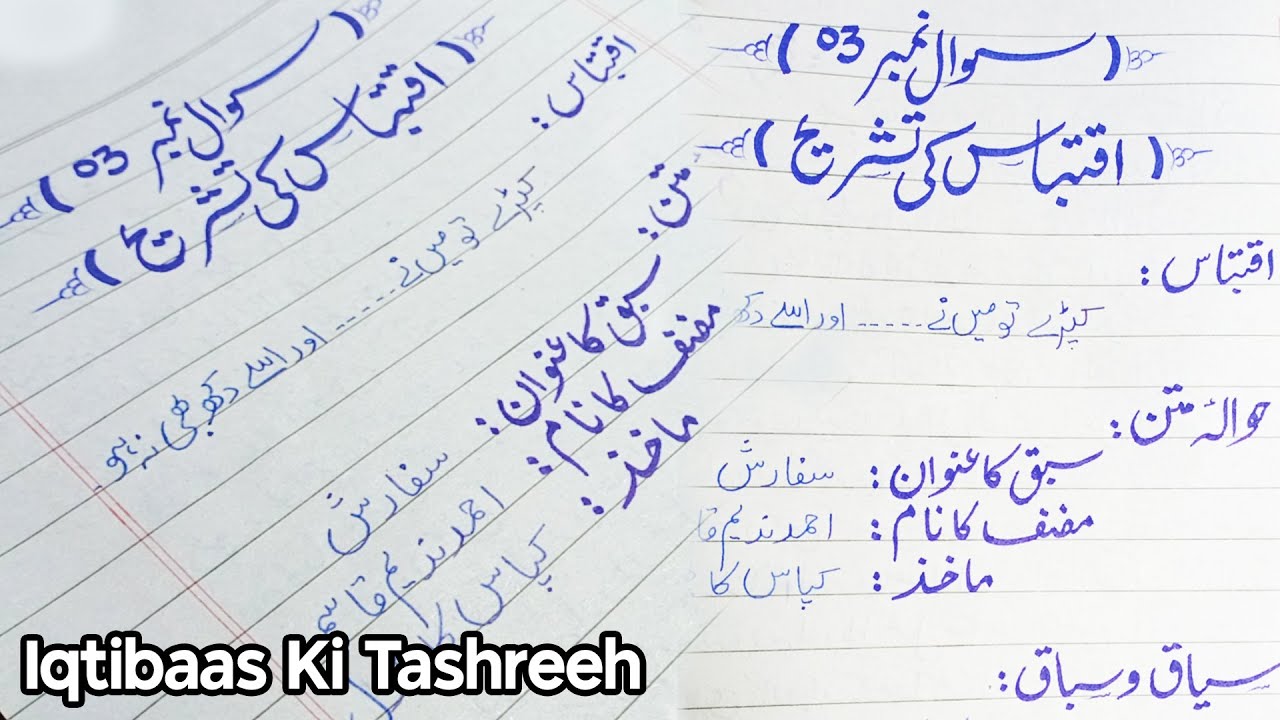 ( سوال نمبر 03 )
( اقتباس کی تشریح )
اقتباس :
کپڑے تو میں نے ----- اور اسے دکھ بھی نہ ہو
متن :
سبق کا عنوان : سفارش
مصنف کا نام : احمد ندیم قاسم
ماخذ : کپاس کا
Iqtibaas Ki Tashreeh
( سوال نمبر 03 )
( اقتباس کی تشریح )
اقتباس :
کپڑے تو میں نے ----- اور اسے دکھ
حوالۂ متن :
سبق کا عنوان : سفارش
مصنف کا نام : احمد ندیم قا
ماخذ : کپاس کا
سیاق و سباق :